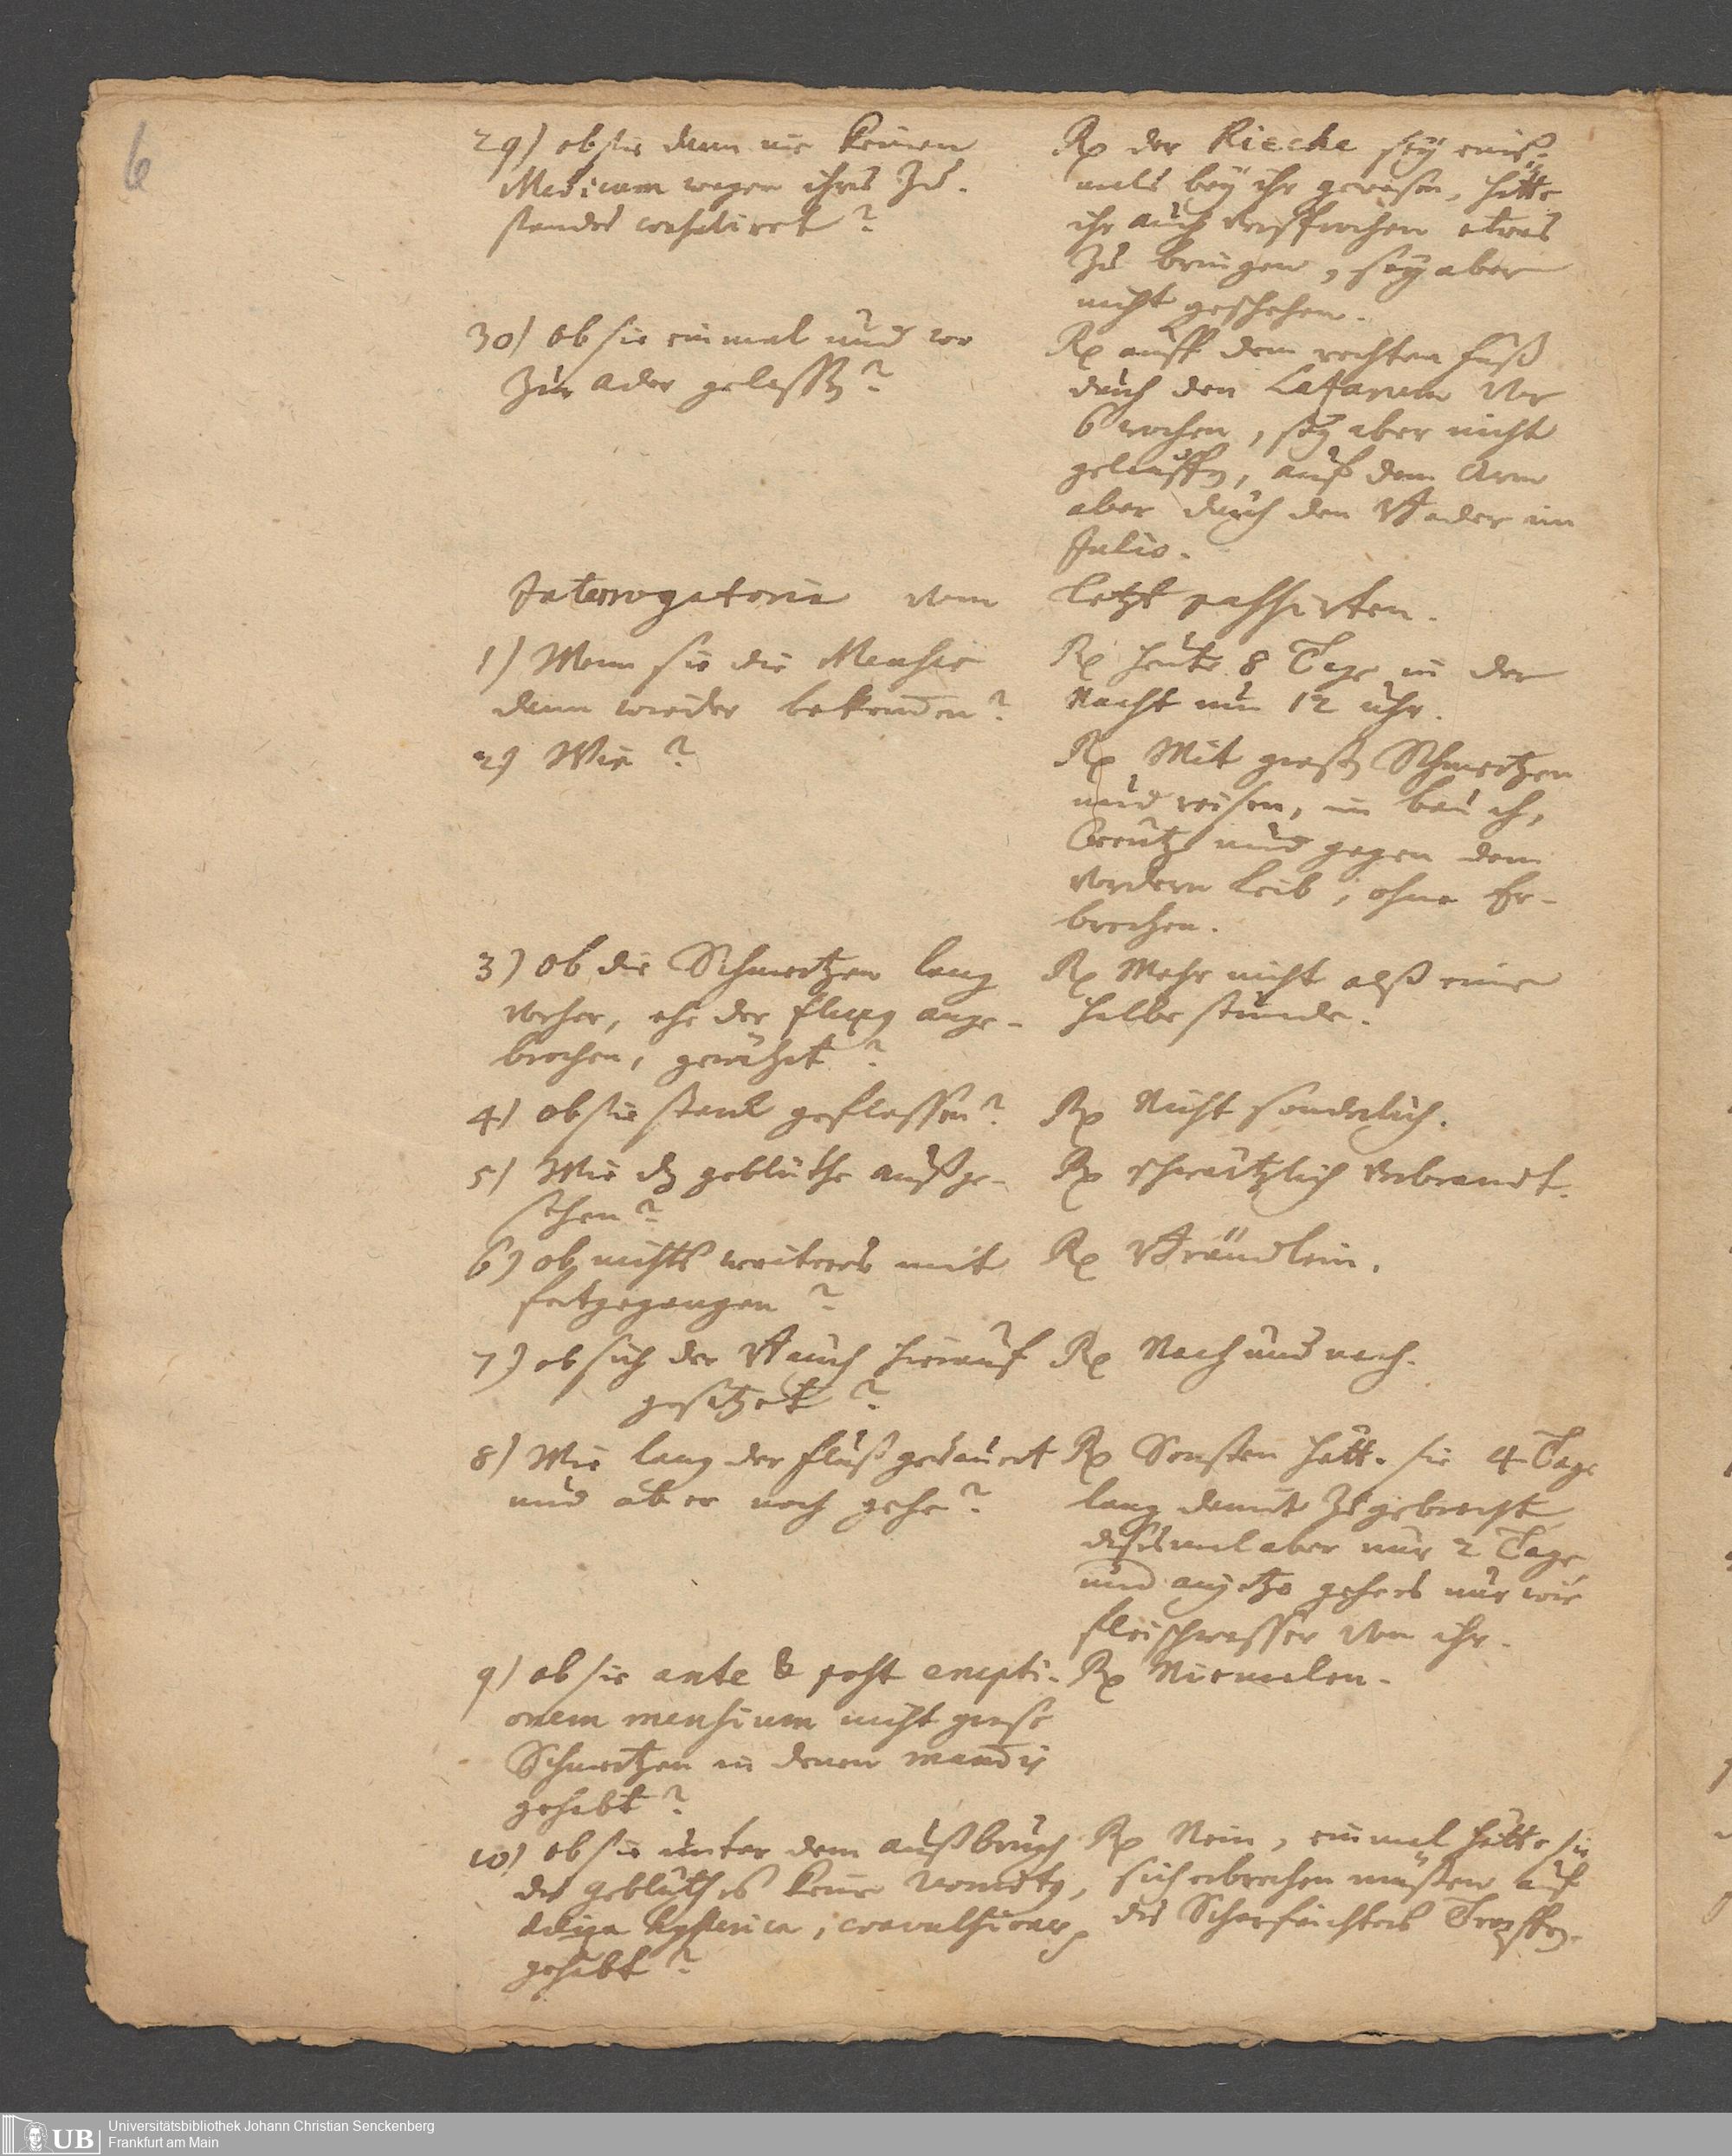 6
29) ob sie dann nie keinen
Medicum wegen ihres Zu-
standes consuliret?
Rp der Riecke sey eins-
mals bey ihr gewesen, hätte
ihr auch versprochen etwas
zu bringen, sey aber
nicht geschehen.
30) Ob sie einmal und wo
Zur ader gelassen?
Rp auff dem rechten fuß
durch den vor
6 wochen, sey aber nicht
geloffen, auf dem Arm
aber durch den Bader im
Julio.
Interrogatoria vom letzt passirten.
1) Wenn sie die Menses
dann wieder bekommen?
Rp heute 8 Tage in der
Nacht um 12 uhr.
2) Wie?
Rp Mit großen Schmertzen
und reisen, im bauch,
Creutz und gegen dem
vordern Leib, ohne Er-
brechen.
3) Ob die Schmertzen lang
vorher, ehe der fluxus ange-
brochen, gewährt?
Rp Mehr nicht alß eine
halbe stunde.
4) ob sie starck geflossen?
Rp Nicht sonderlich.
5) Wie dz geblüthe außge-
sehen?
Rp schwartzlich verbrandt.
6) ob nichts weiteres mit
fortgegangen?
Rp
7) ob sich der Bauch hierauf
gesetzet?
Rp Nach und nach.
8) Wie lang der fluß gedauert
und ob er noch gehe?
Rp Sonsten hätte sie 4 Tage
lang damit zugebracht
dißmal aber nur 2 Tage
und anjetzo gehe es nur wie
fleischwasser von ihr.
9) ob sie ante & post erupti-
onem mensium nicht große
Schmertzen in denen
gehabt?
Rp Niemalen.
10) ob sie unter dem außbruch
des geblüthes keine vomitus,
hysterica, convulsiones
gehabt?
Rp Nein, einmal hätte sie
sich erbrechen müßen auf
des Scharfrichters Tropffen.
Universitätsbibliothek Johann Christian Senckenberg
Frankfurt am Main
UB